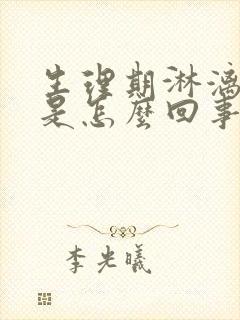 生理期淋漓
是怎麼回事
李光曦